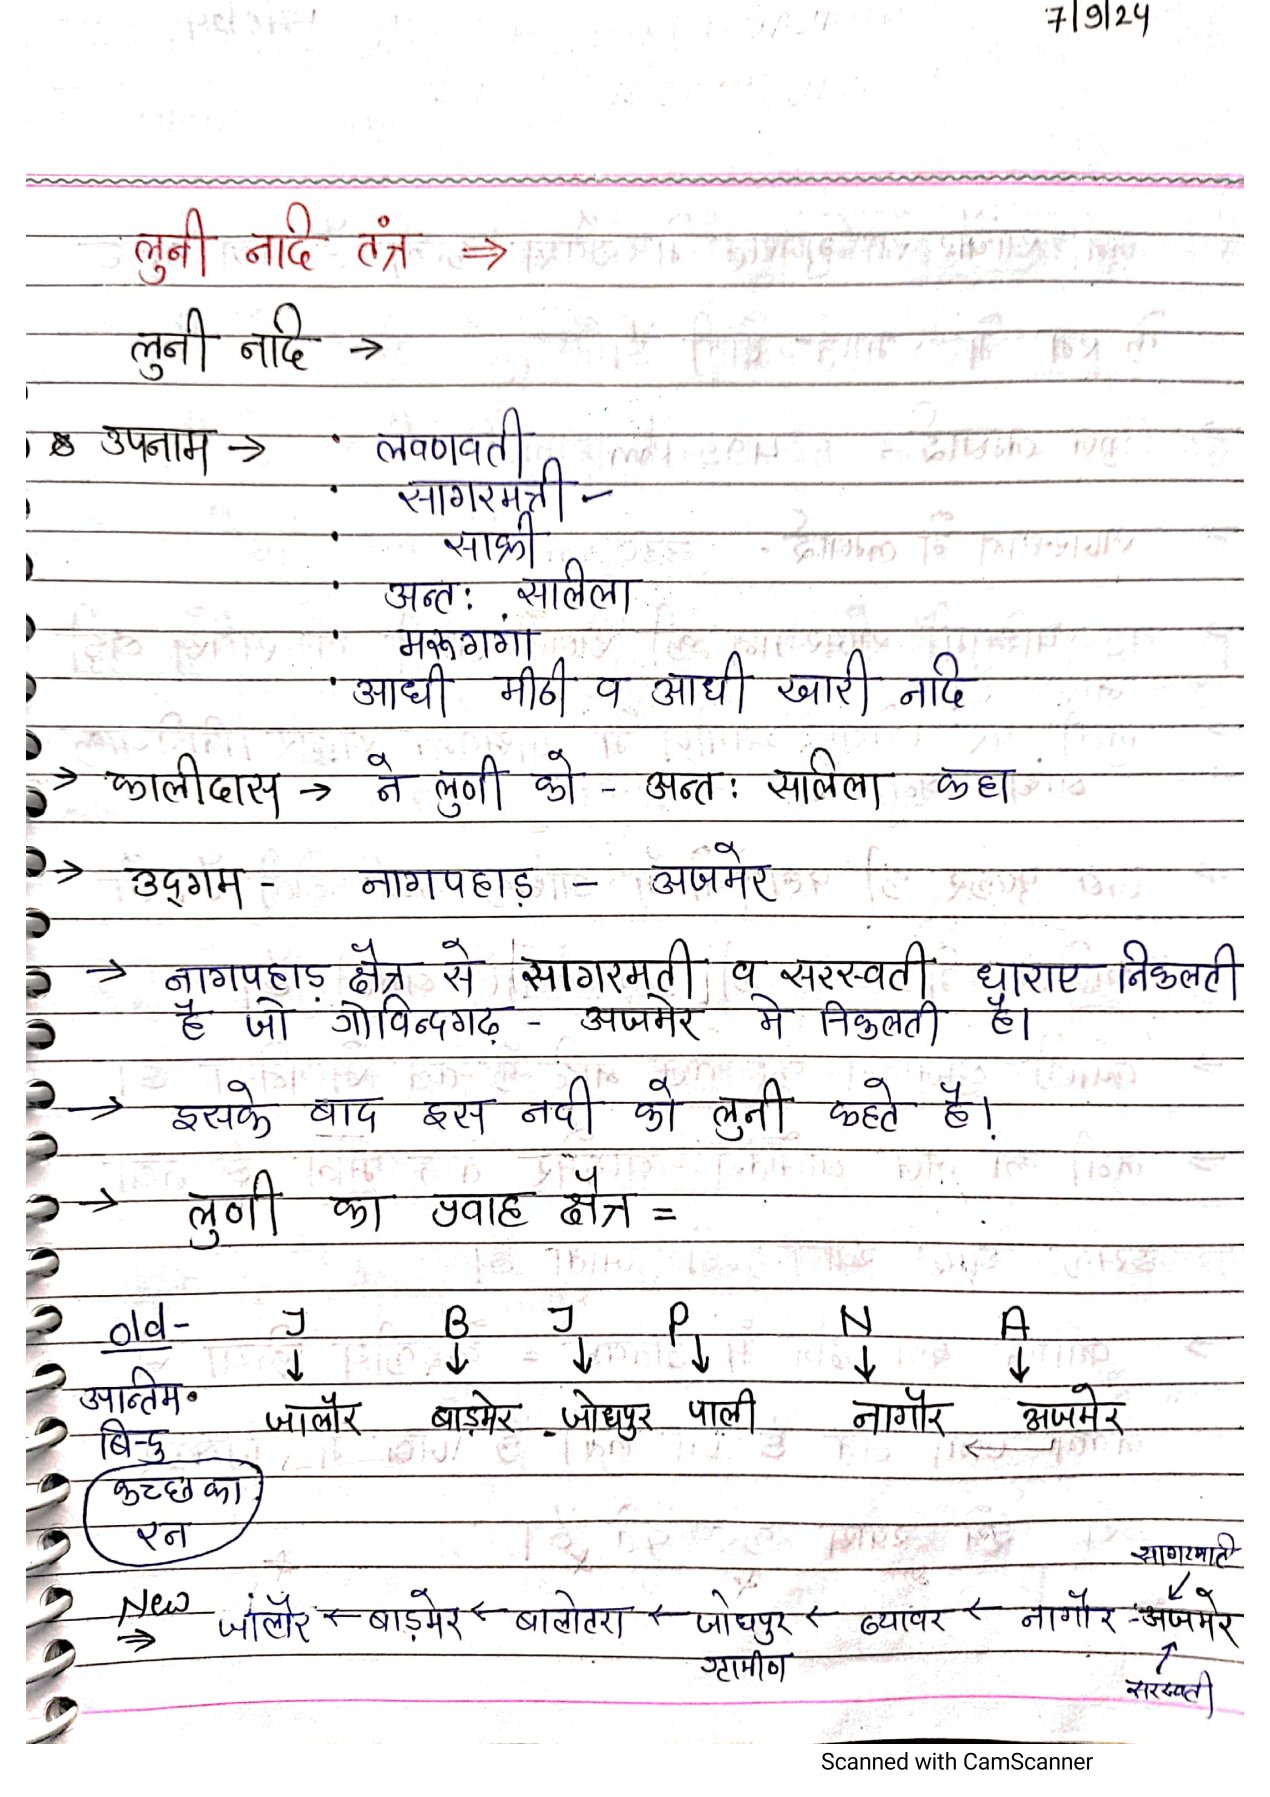 7/9/24
लुनी नदि तंत्र ⇒
लुनी नदि →
उपनाम → • लवणवती
• सागरमती -
• साक्री
• अन्त: सलिला
• मरूगगां
• आधी मीठी व आधी खारी नदि
→ कालीदास → ने लुणी को - अन्त: सलिला कहा
→ उद्गम - नागपहाड़ - अजमेर
→ नागपहाड़ क्षैत्र से सागरमती व सरस्वती धाराए निकलती
है जो गोविन्दगढ़ - अजमेर मे निकलती है।
→ इसके बाद इस नदी को लुनी कहते है।
→ लुणी का प्रवाह क्षैत्र =
old - J B J P N A
↓ ↓ ↓ ↓ ↓ ↓
अन्तिम • जालौर बाड़मेर जोधपुर पाली नागौर अजमेर
बिन्दु ←
कच्छ का
रन
सागरमति
↙
New ⇒ जालौर ← बाड़मेर ← बालोतरा ← जोधपुर ← ब्यावर ← नागौर - अजमेर
ग्रामीण ↑
सरस्वती
Scanned with CamScanner